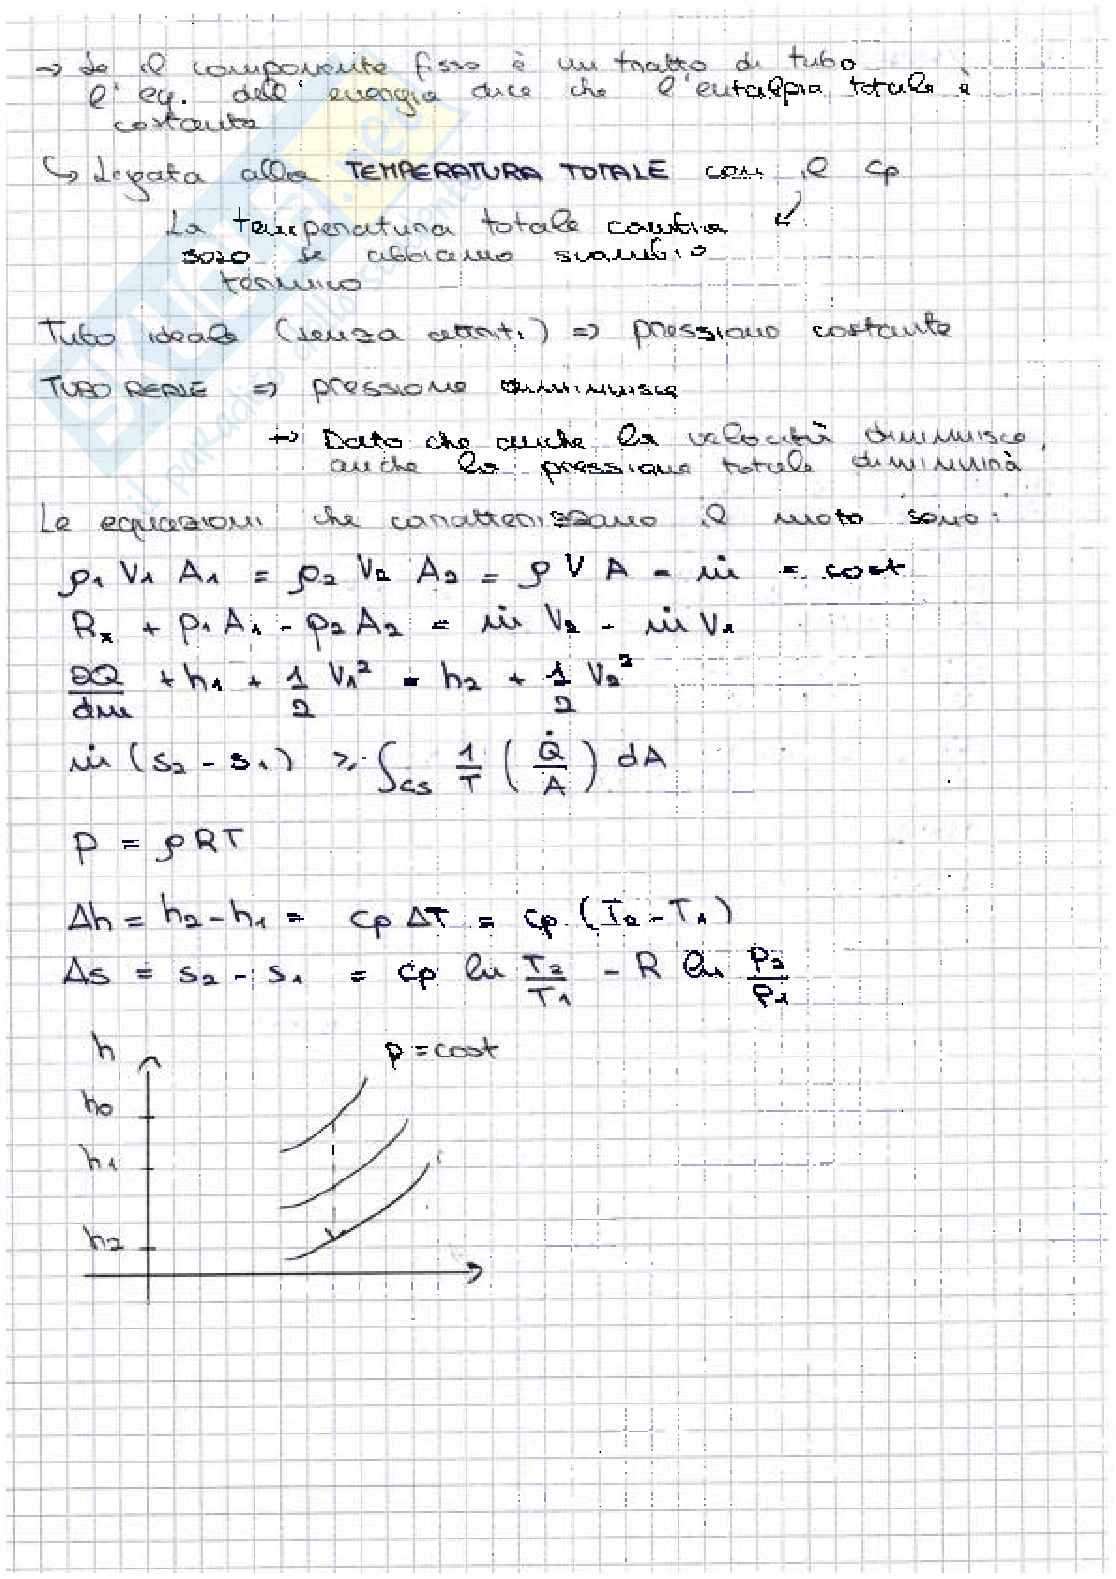 → Se il componente fisso è un tratto di tubo
l'eq. dell'energia dice che l'entalpia totale è
costante
↳ Legata alla TEMPERATURA TOTALE con il cp
La temperatura totale cambia
solo se abbiamo scambio
termico
Tubo ideale (senza attriti) => pressione costante
TUBO REALE => pressione diminuisce
→ Dato che anche la velocità diminuisce,
anche la pressione totale diminuirà
Le equazioni che caratterizzano il moto sono:
ρ1 V1 A1 = ρ2 V2 A2 = ρ V A = ṁ = cost
Rx + p1 A1 - p2 A2 = ṁ V2 - ṁ V1
∂Q/dm + h1 + 1/2 V1² = h2 + 1/2 V2²
ṁ (s2 - s1) ≥ ∫cs 1/T (Q̇/A) dA
P = ρRT
Δh = h2 - h1 = cp ΔT = cp (T2 - T1)
Δs = s2 - s1 = cp ln T2/T1 - R ln P2/P1
h
p = cost
h0
h1
h2